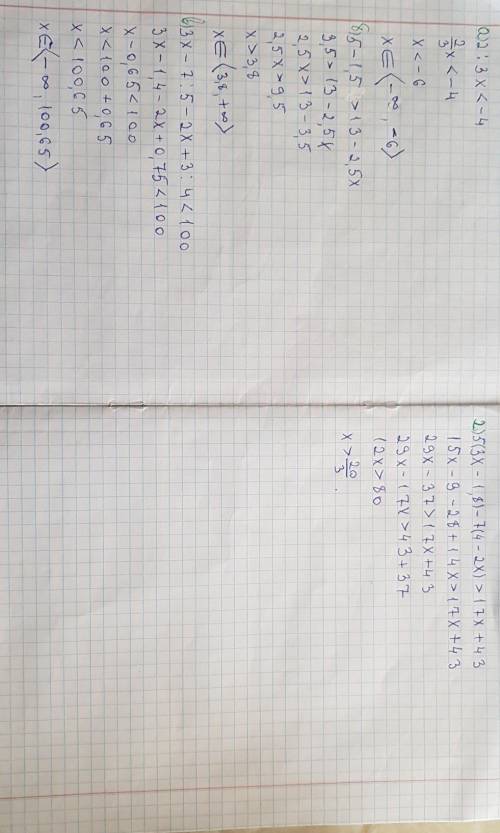 а) 2:3x<-4
2/3 x<-4
x<-6
x∈(-∞,-6)
б) 5-1,5>13-2,5x
3,5>13-2,5x
2,5x>13-3,5
2,5x>9,5
x>3,8
x∈(3,8,+∞)
в) 3x-7:5-2x+3:4<100
3x-1,4-2x+0,75<100
x-0,65<100
x<100+0,65
x<100,65
x∈(-∞,100,65)
2) 5(3x-1,8)-7(4-2x)>17x+43
15x-9-28+14x>17x+43
29x-37>17x+43
29x-17x>43+37
12x>80
x>20/3.